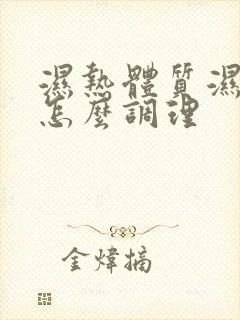 濕熱體質濕
怎麼調理
金煒摘